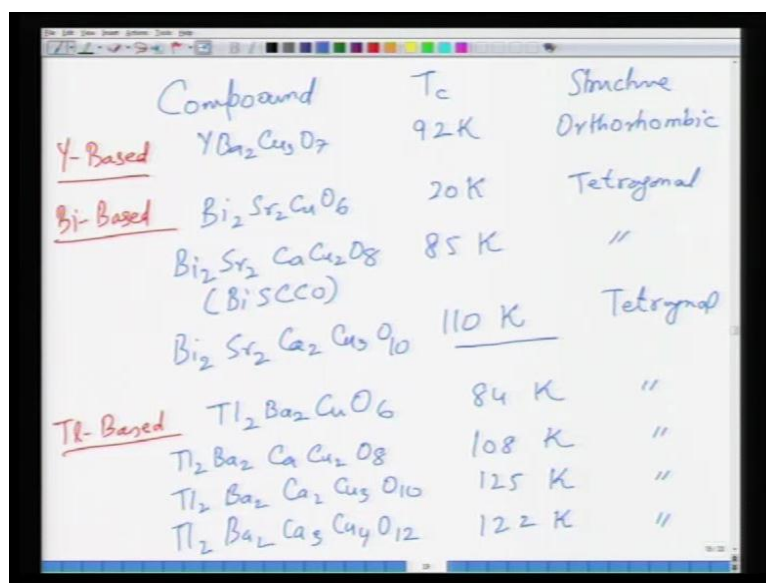 Compound Tc Structure
Y-Based YBa2Cu3O7 92K Orthorhombic
Bi-Based Bi2Sr2CuO6 20K Tetragonal
Bi2Sr2CaCu2O8 85 K "
(BiSCCO)
Bi2Sr2Ca2Cu3O10 110 K Tetragonal
Tl-Based Tl2Ba2CuO6 84 K "
Tl2Ba2CaCu2O8 108 K "
Tl2Ba2Ca2Cu3O10 125 K "
Tl2Ba2Ca3Cu4O12 122 K "